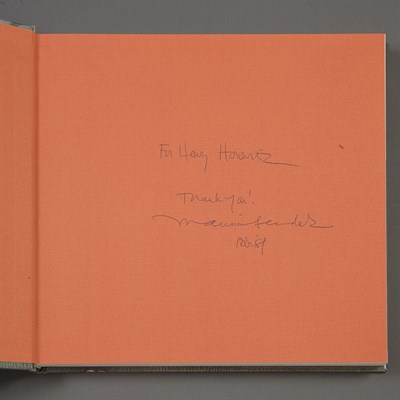 For Henry Horowitz
Thank you!
Maurice Sendak